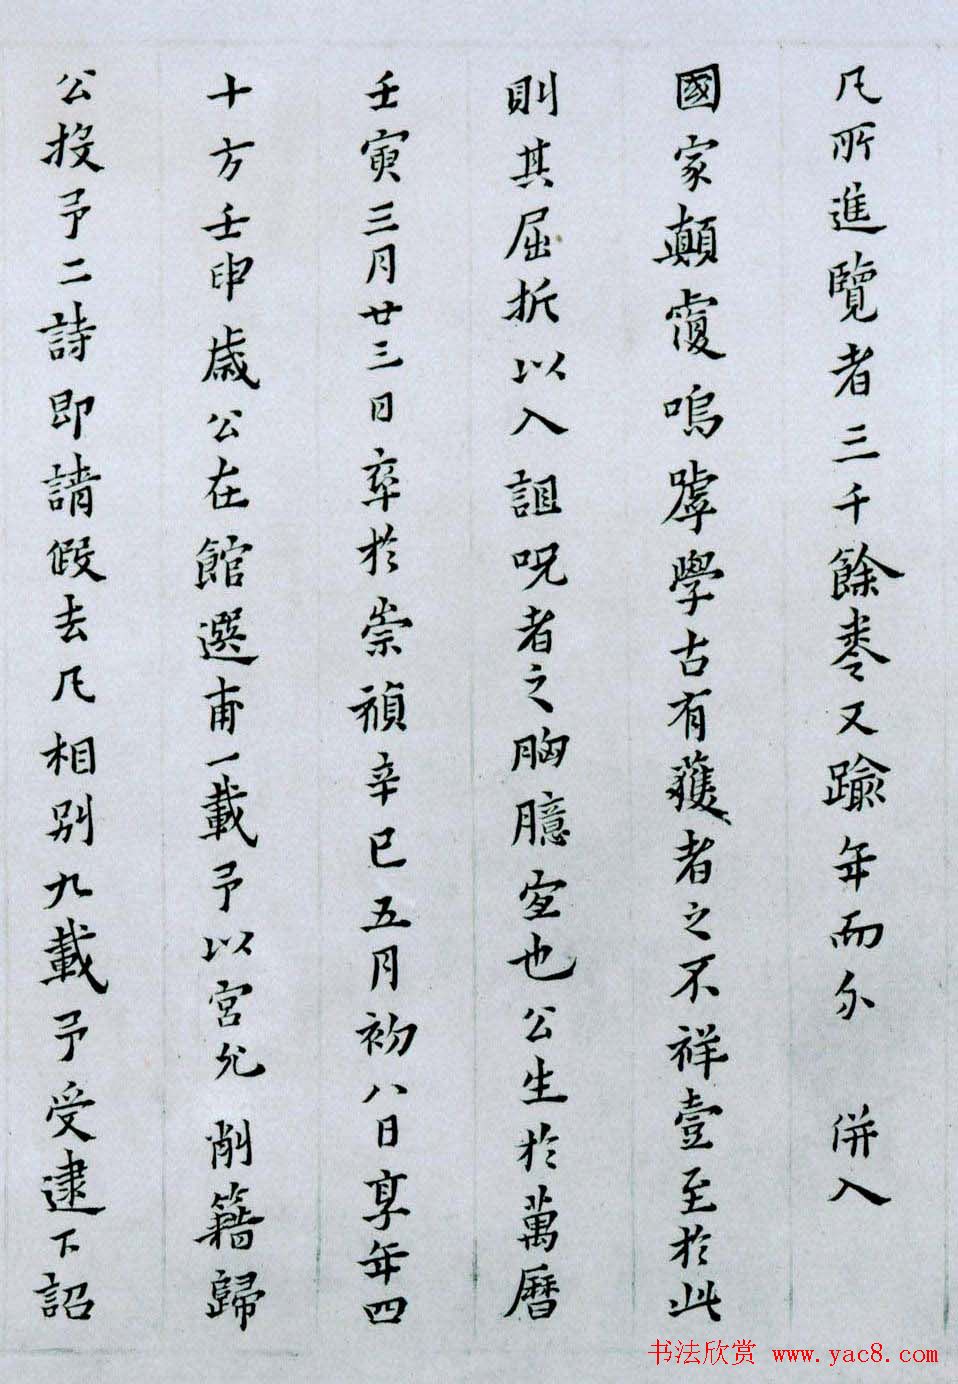 凡所進覽者三千餘卷又踰年而分 併入
國家顛覆嗚嘑學古有獲者之不祥壹至於此
則其屈折以入詛呪者之胸臆宜也公生於萬曆
壬寅三月廿三日卒於崇禎辛巳五月初八日享年四
十方壬申歲公在館選甫一載予以宮允削籍歸
公投予二詩即請假去凡相別九載予受逮下詔
书法欣赏 www.yac8.com